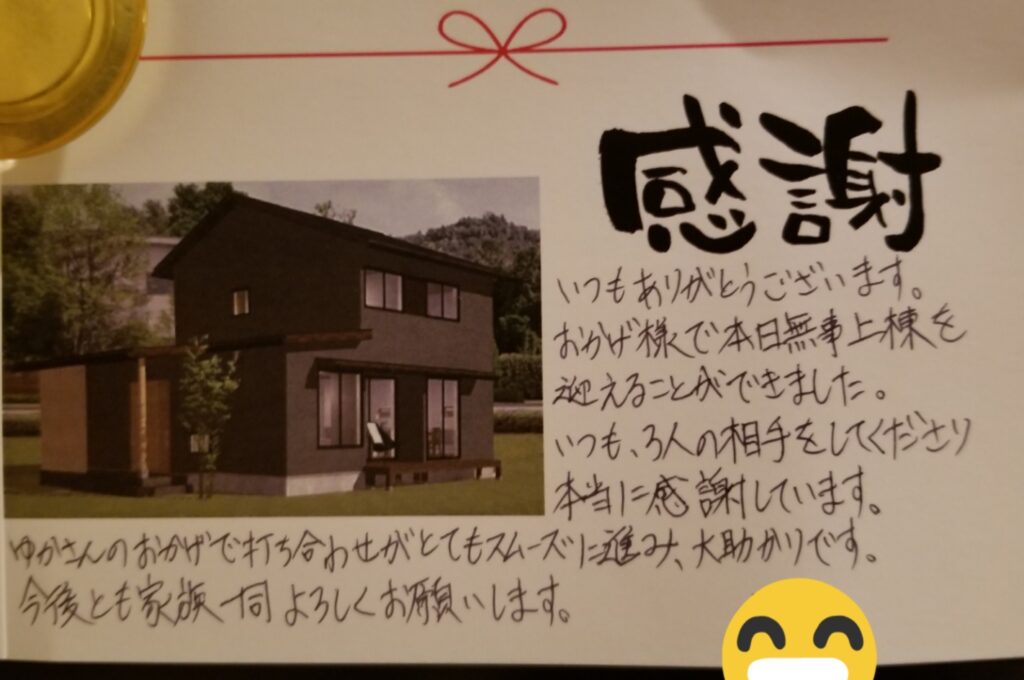 感謝
いつもありがとうございます。
おかげ様で本日無事上棟を
迎えることができました。
いつも、3人の相手をしてくださり
本当に感謝しています。
ゆかさんのおかげで打ち合わせがとてもスムーズに進み、大助かりです。
今後とも家族一同よろしくお願いします。